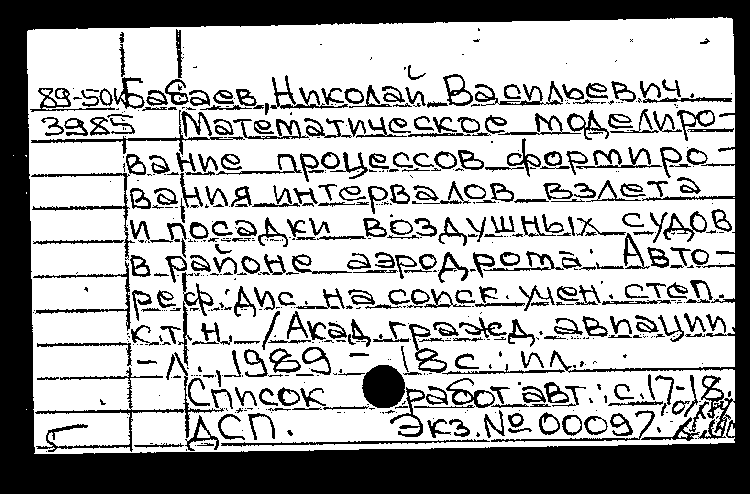 89-50к Бабаев, Николай Васильевич.
3985 Математическое моделиро-
вание процессов формиро-
вания интервалов взлета
и посадки воздушных судов
в районе аэродрома: Авто-
реф. дис. на соиск. учен. степ.
к.т.н. /Акад. гражд. авиации.
-Л., 1989. - 18 с.: ил.
Список работ авт.: с. 17-18.
5 ДСП. Экз. № 00097.